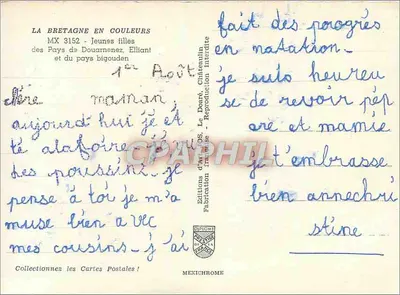 LA BRETAGNE EN COULEURS
MX 3152 - Jeunes filles
des Pays de Douarnenez, Elliant
et du pays bigouden
1er Août
chère maman
aujourd hui je é
té alafoire j'ai vu
des poussins. je
pense à toi je m'a
muse bien a vec
mes cousins - j'ai
Collectionnez les Cartes Postales !
Editions d'Art JOS, Le Doaré, Châteaulin
Fabrication Reproduction interdite
MEXICHROME
fait des porogrès
en natation.
je suis heureu
se de revoir pép
ère et mamie
je t'embrasse
bien annechri
stine